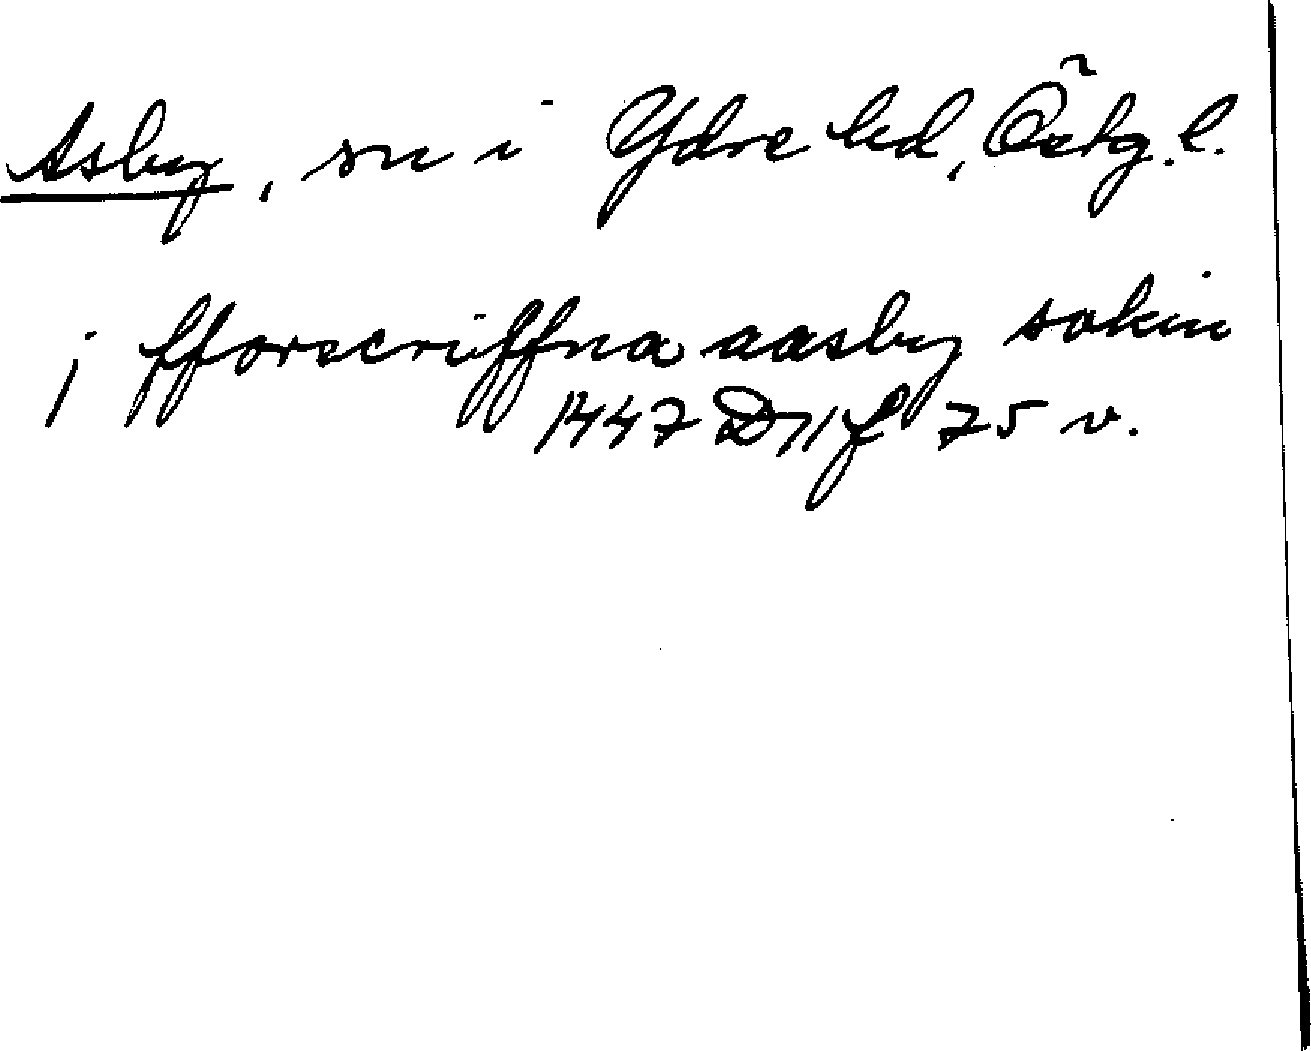 Asby, sn i Ydre hd, Östg. l.
j fforscriffna aasby sokin
1447 D11 f 75 v.